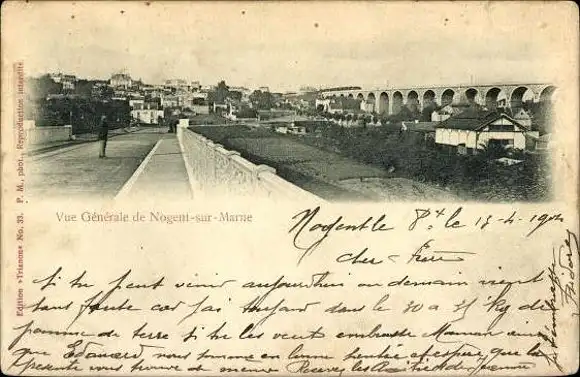 Edition «Trianon» No. 33. P. M., phot. Reproduction interdite.
Vue Générale de Nogent-sur-Marne
Nogent le 13-4-1902
cher
Si tu peut venir aujourd'hui ou demain vient
sans faute car j'ai aujourd dans le 30 a 35 Kg de
pomme de terre si tu les veut embrasse Maman ainsi
que Edouard nous somme en bonne santée et espère que la
présente vous trouve de meme Recevez les